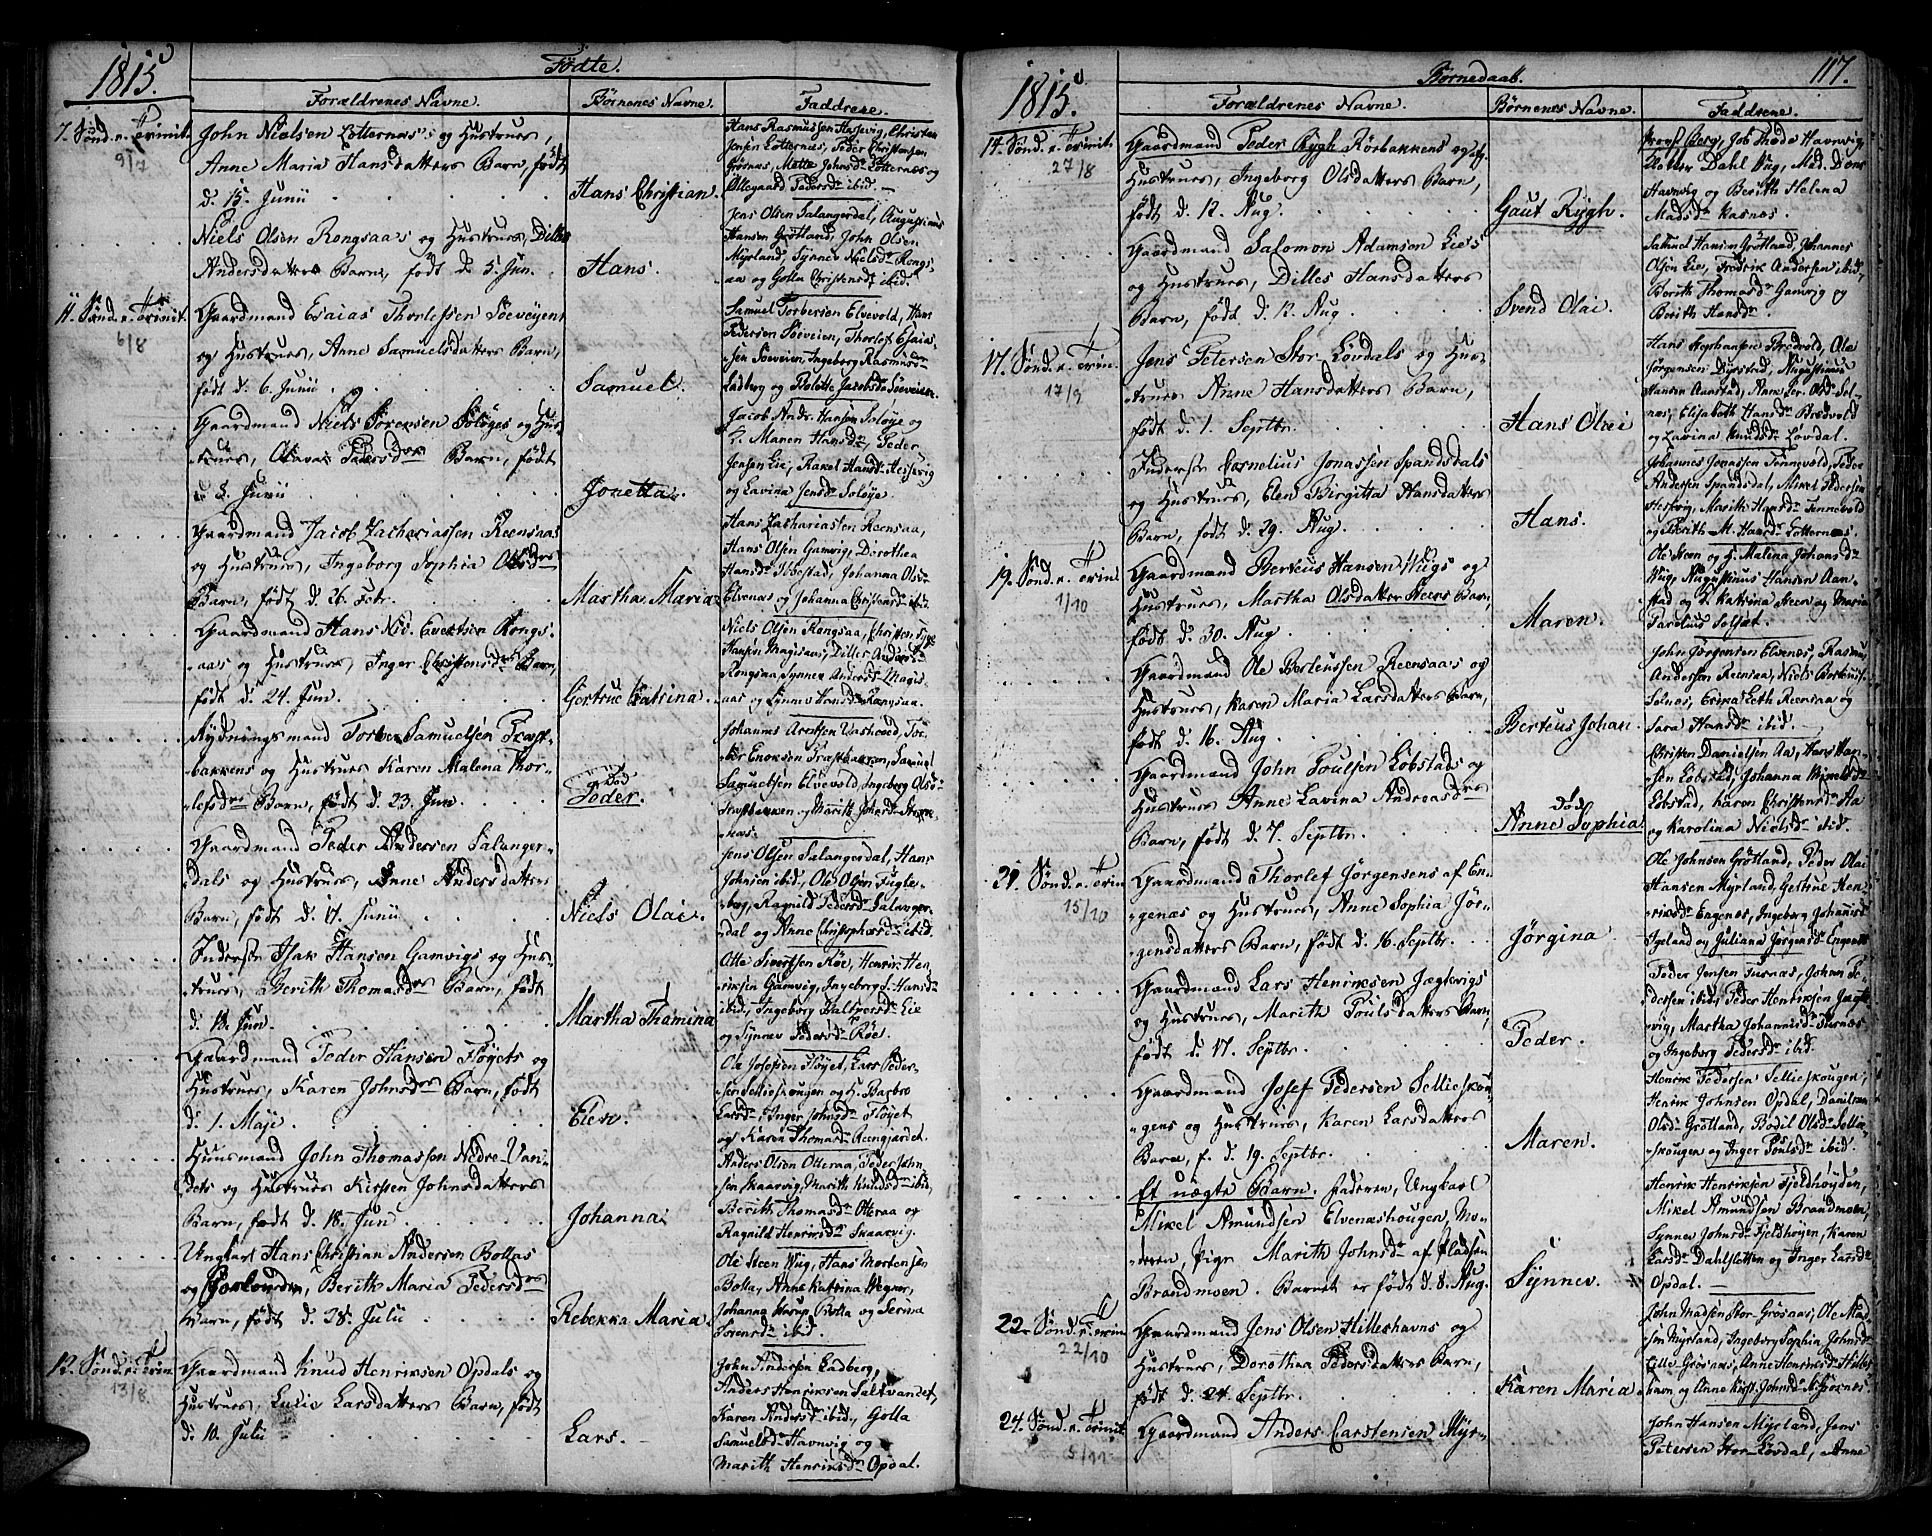 1815.
Fødte.
Forældrenes Navne.
Børnenes Navne.
Faddrene.
7. Sønd. e. Trinit.
9/7
John Nielsen Lotternæs's og Hustrues,
Anne Maria Hansdatters Barn, født
d. 15. Junii
Hans Christian.
Hans Rasmussen Hasevig, Christen
Jensen Lotternæs, Peder Christensen
Mette Johnsdr Lotternæs og
Ollegaard Pedersdr ibid.
Niels Olsen Rongsaas og Hustrues, Dilles
Andersdatters Barn, født d. 5. Jun.
Hans.
Jens Olsen Salangerdal, Augustinus
Hansen Grøtland, John Olsen
Myrland, Synnev Nielsdr Rongs-
aa og Golla Christensdr ibid.
11. Sønd. e. Trinit.
6/8
Gaardmand Esaias Thorlefsen Søeveiens
og Hustrues, Anne Samuelsdatters Barn,
født d. 6. Junii
Samuel.
Samuel Torbersen Elvevold, Hans
Pedersen Søeveien, Thorlef Esaia-
sen Søeveien, Ingeborg Rasmusdr
Ladberg og Jacobsdr Søeveien.
Gaardmand Niels Sørensen Soløges og Hus-
trues, Olava Pedersdrs Barn, født
d. 8. Junii
Jonetta.
Jacob Andr. Hansen Soløye og
Maren Hansdr, Peder
Jensen Lie, Rakel Hansdr Hessevig
og Lavina Jensdr Soløye.
Gaardmand Jacob Zachariassen Reensaas
og Hustrues, Ingeborg Sophia Olsdrs
Barn, født d. 26. Febr.
Martha Maria
Hans Zachariasen Reensaa,
Hans Olsen Gamvig, Dorothea
Hansdr Ibbestad, Johanna Olsdr
Elvenæs og Johanna Christensdr ibid.
Gaardmand Hans Nic. Evertsen Rongs-
aas og Hustrues, Inger Christensdrs Barn,
født d. 24. Jun.
Gertrue Catrina.
Niels Olsen Rongsaa, Christen
Hansen Magisaas, Dilles Andersdr
Rongsaa, Synnev Andersdr Magis-
aas og Synnev Hansdr Rongsaa.
Rydningsmand Torber Samuelsen Træst-
bakkens og Hustrues Karen Malena Thor-
lefsdrs Barn, født d. 23. Jun.
død
Peder.
Johannes Arntsen Vashoved, Tor-
ber Enoksen Træstbakken, Samuel
Samuelsen Elvevold, Ingeborg Olsdr
Træstbakken og Marith Johansdr
næs.
Gaardmand Peder Andersen Salanger-
dals og Hustrues, Anne Andersdatters
Barn, født d. 17. Junii
Niels Olai.
Jens Olsen Salangerdal, Hans
Johnsen ibid, Ole Olsen Fugle-
berg, Ragnild Pedersdr Salanger-
dal og Anne Christophersdr ibid.
Inderst Isak Hansen Gamvigs og Hus-
trues, Berith Thomasdrs Barn, født
d. 18. Jun.
Martha Thamina
Otte Sivertsen Røe, Henrik Hen-
riksen Gamvig, Ingeborg L. Hansdr
ibid, Ingeborg Halvorsdr Lie
og Synnev Pedersdr Røe.
Gaardmand Peder Hansen Fløyets og
Hustrues, Karen Johnsdrs Barn, født
d. 1. Maje
Elen.
Ole Josefsen Fløyet, Lars Peder-
sen Sellieskougen og H. Barbro
Larsdr, Inger Johnsdr Fløyet
og Karen Thomasdr Reengjærdet.
Huusmand John Thomassen Nedre-Van-
dets og Hustrues Kirsten Johnsdatters
Barn, født d. 18. Jun.
Johanna
Anders Olsen Otteraa, Peder John-
sen Skaarvig, Marith Knudsdr ibid,
Berith Thomasdr Otteraa og
Ragnild Henriksdr Skaarvig.
Ungkarl Hans Christian Andersen Bollas
og Forlovedes, Berith Maria Pedersdrs
Barn, født d. 28. Julii
Rebekka Maria.
Ole Steen Wug, Hans Mortensen
Bolla, Anne Katrina Wegner,
Johanna Bolla og Serina
Sørensdr ibid.
12. Sønd. e. Trin.
13/8
Gaardmand Knud Henriksen Opdals og
Hustrues, Lucie Larsdatters Barn, født
d. 10. Julii
Lars.
John Andersen Ladberg,
Anders Henriksen Saltvandet,
Karen Andersdr ibid., Golla
Samuelsdr Havnvig og
Marith Henriksdr Opdal.
1815.
Børnedaab.
117.
Forældrenes Navne.
Børnenes Navne.
Faddrene.
14. Sønd. e. Trinit.
27/8
Gaardmand Peder Rygh Rørbakkens og
Hustrues, Ingeborg Olsdatters Barn,
født d. 12. Aug.
Gaut Rygh.
Provst Berg, Job Thode Havnvig,
Klokker Dahl Wug, Mad. Dons
Havnvig og Berith Helena
Madsdr Kasnes.
Gaardmand Salomon Adamsen Lies
og Hustrues, Dilles Hansdatters
Barn, født d. 12. Aug.
Svend Olai.
Samuel Hansen Grøtland, Johannes
Olsen Lie, Fredrik Andersen ibid,
Berith Thomasdr Gamvig og
Berith Hansdr.
17. Sønd. e. Trin.
17/9
Jens Petersen Stor-Løvdals og Hus-
trues Anne Hansdatters Barn,
født d. 1. Septbr.
Hans Olai
Hans Bredvold, Ole
Jørgensen Dyrstad, Augustinus
Hansen Aanstad, Anne Olsdr Sel-
næs, Elisabeth Hansdr Bredvold
og Lavina Knudsdr Løvdal.
Inderst Cornelius Jonassen Spandsdals
og Hustrues, Elen Birgitta Hansdatters
Barn, født d. 29. Aug.
Hans.
Johannes Jonassen Tennevold, Peder
Andersen Spandsdal, Mikel Pedersen
Hesvig, Marith Hansdr Tennevold
og Berith M. Hansdr Lotternæs.
19. Sønd. e. Trin
1/10
Gaardmand Berteus Hansen Wugs og
Hustrues, Martha Olsdatter Steens Barn,
født d. 30. Aug.
Maren.
Ole Steen og H. Malina Johansdr
Wug, Augustinus Hansen Aan-
stad og J. Katrina Steen og Maria
Parelius Selset.
Gaardmand Ole Berteussen Reensaas og
Hustrues, Karen Maria Larsdatters Barn,
født d. 16. Aug.
Berteus Johan.
John Jørgensen Elvenes, Rasmus
Andersen Reensaa, Niels Berteuss.
Selnes, Erika Leth Reensaa og
Sara Hansdr ibid.
Gaardmand John Poulsen Løbstads og
Hustrues Anne Lavina Andreasdrs
Barn, født d. 7. Septbr.
død
Anne Sophia
Christen Danielsen Aa, Hans Han-
sen Løbstad, Johanna Mikelsdr
Løbstad, Karen Christensdr Aa
og Karolina Nielsdr ibid.
21. Sønd. e. Trin
15/10
Gaardmand Thorlef Jørgensens af En-
genæs og Hustrues, Anne Sophia Jør-
gensdatters Barn, født d. 16. Septbr.
Jørgina
Ole Johnsen Grøtland, Peder Olai
Hansen Myrland, Gertrue Hen-
riksdr Engenes, Ingeborg Johannisdr
Igeland og Juliana Jørgensdr Engenes
Gaardmand Lars Henriksen Jægtevigs
og Hustrues, Marith Poulsdatters Barn,
født d. 17. Septbr.
Peder.
Peder Jensen Furnæs, Johan Pe-
dersen ibid, Peder Henriksen Jægte-
vig, Martha Johannisdr Furnæs
og Ingeborg Pedersdr ibid.
Gaardmand Josef Pedersen Sellieskou-
gens og Hustrues, Karen Larsdatters
Barn, f. d. 19. Septbr.
Maren.
Henrik Pedersen Sellieskougen,
Henrik Johnsen Opdal,
Olsdr Grøtland, Bodil Olsdr Sellie-
skougen og Inger Poulsdr ibid.
Et uægte Barn. Faderen, Ungkarl
Mikel Amundsen Elvenæshougen, Mo-
deren, Pige Marith Johnsdr af Pladsen
Brandmoen. Barnet er født d. 8. Aug.
Synnev.
Henrik Henriksen Fjeldhøyden,
Mikel Amundsen Brandmoen,
Synnev Johnsdr Fjeldhøyen, Karen
Larsdr Dahlsletten og Inger Larsdr
Opdal.
22. Sønd. e. Trin
22/10
Gaardmand Jens Olsen Hilleshavns og
Hustrues, Dorothea Pedersdatters Barn,
født d. 24. Septbr.
Karen Maria
John Madsen Stor-Grøsaas, Ole Mad-
sen Myrland, Ingeborg Sophia Johnsdr
Lille Grøsaas, Anne Henriksdr Hilles-
havn og Anne Kirst. Johnsdr
24. Sønd. e. Trinit
5/11
Gaardmand Anders Carstensen Myr-
John Hansen Myrland, Jens
Petersen Stor-Løvdal, Anne